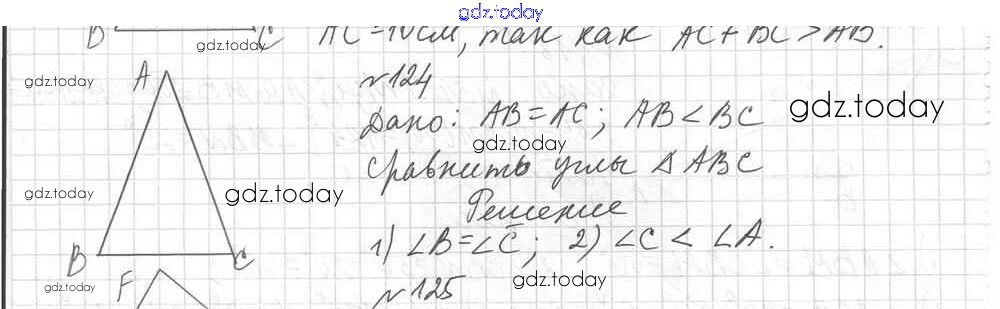 gdz.today
B C AC = 10 см, так как AC + BC > AB.
gdz.today
A
№124
gdz.today
Дано: AB = AC; AB < BC
gdz.today
gdz.today
Сравнить углы △ABC
gdz.today
gdz.today
Решение
1) ∠B = ∠C; 2) ∠C < ∠A.
B C
gdz.today
gdz.today
F
№125